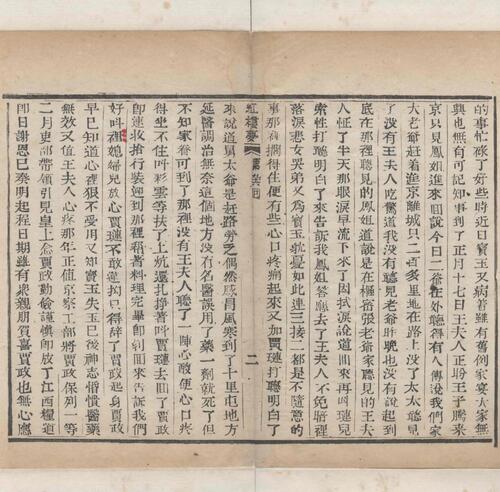 的事忙碌了好些時近日寶玉又病着雖有舊例家宴大家無
興也無有可記之事到了正月十七日王夫人正盼王子騰來
京只見鳳姐進來回說今日二爺在外聽得有人傳說我們家
大老爺赶着進京離城只二百多里地在路上沒了太太聽見
了沒有王夫人吃驚道我沒有聽見老爺昨晚也沒有說起到
底在那裡聽見的鳳姐道說是在樞密張老爺家聽見的王夫
人怔了半天那眼淚早流下來了因拭淚說道回來再叫璉兒
索性打聽明白了來告訴我鳳姐答應去了王夫人不免暗裡
落淚悲女哭弟又為寶玉躭憂如此連三接二都是不隨意的
事那裡擱得住便有些心口疼痛起來又加賈璉打聽明白了
紅樓夢 第九六回 二
來說道舅太爺是赶路勞乏偶然感冒風寒到了十里屯地方
延醫調治無奈這個地方沒有名醫誤用了藥一劑就死了但
不知家眷可到了那裡沒有王夫人聽了一陣心酸便心口疼
得坐不住叫彩雲等扶了上炕還扎掙著叫賈璉去回了賈政
卽速收拾行裝迎到那裡帮著料理完畢卽刻回來告訴我們
好叫你媳婦兒放心賈璉不敢違拗只得辭了賈政起身賈政
早已知道心裡狠不受用又知寶玉失玉已後神志惛憒醫藥
無效又值王夫人心疼那年正值京察工部將賈政保列一等
二月吏部帶領引見皇上念賈政勤儉謹慎卽放了江西糧道
卽日謝恩已奏明起程日期雖有衆親朋賀喜賈政也無心應